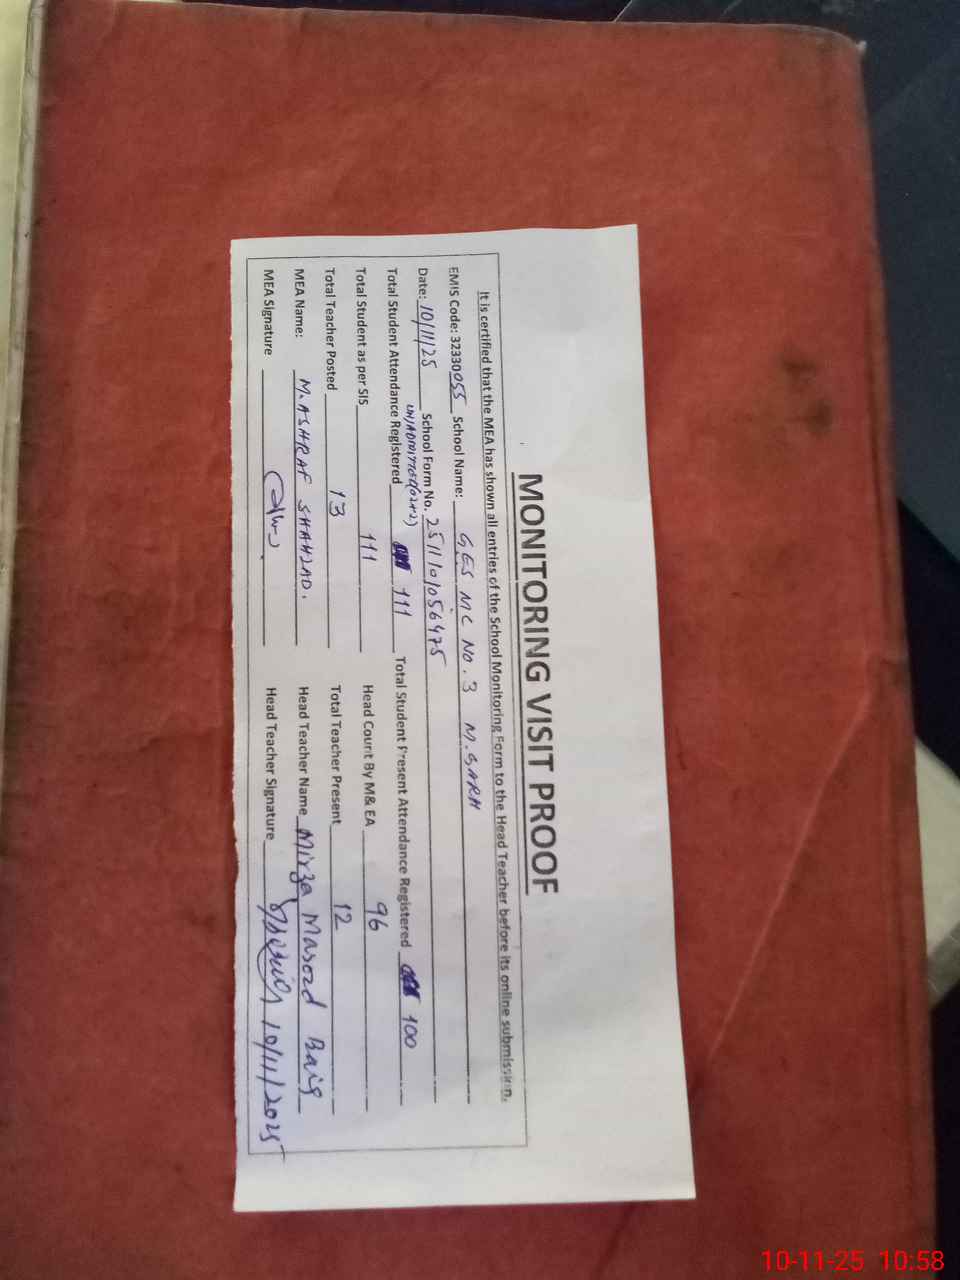 MONITORING VISIT PROOF
It is certified that the MEA has shown all entries of the School Monitoring Form to the Head Teacher before its online submission.
EMIS Code: 32330055 School Name: GES MC No. 3 M.GARH
Date: 10/11/25 School Form No. 2511101056475
Total Student Attendance Registered 111 Total Student Present Attendance Registered 100
Total Student as per SIS 111 Head Count By M& EA 96
Total Teacher Posted 13 Total Teacher Present 12
MEA Name: M. ASHRAF SHAHZAD. Head Teacher Name Mirza Masood Baig
MEA Signature Head Teacher Signature 10/11/2025
10-11-25 10:58